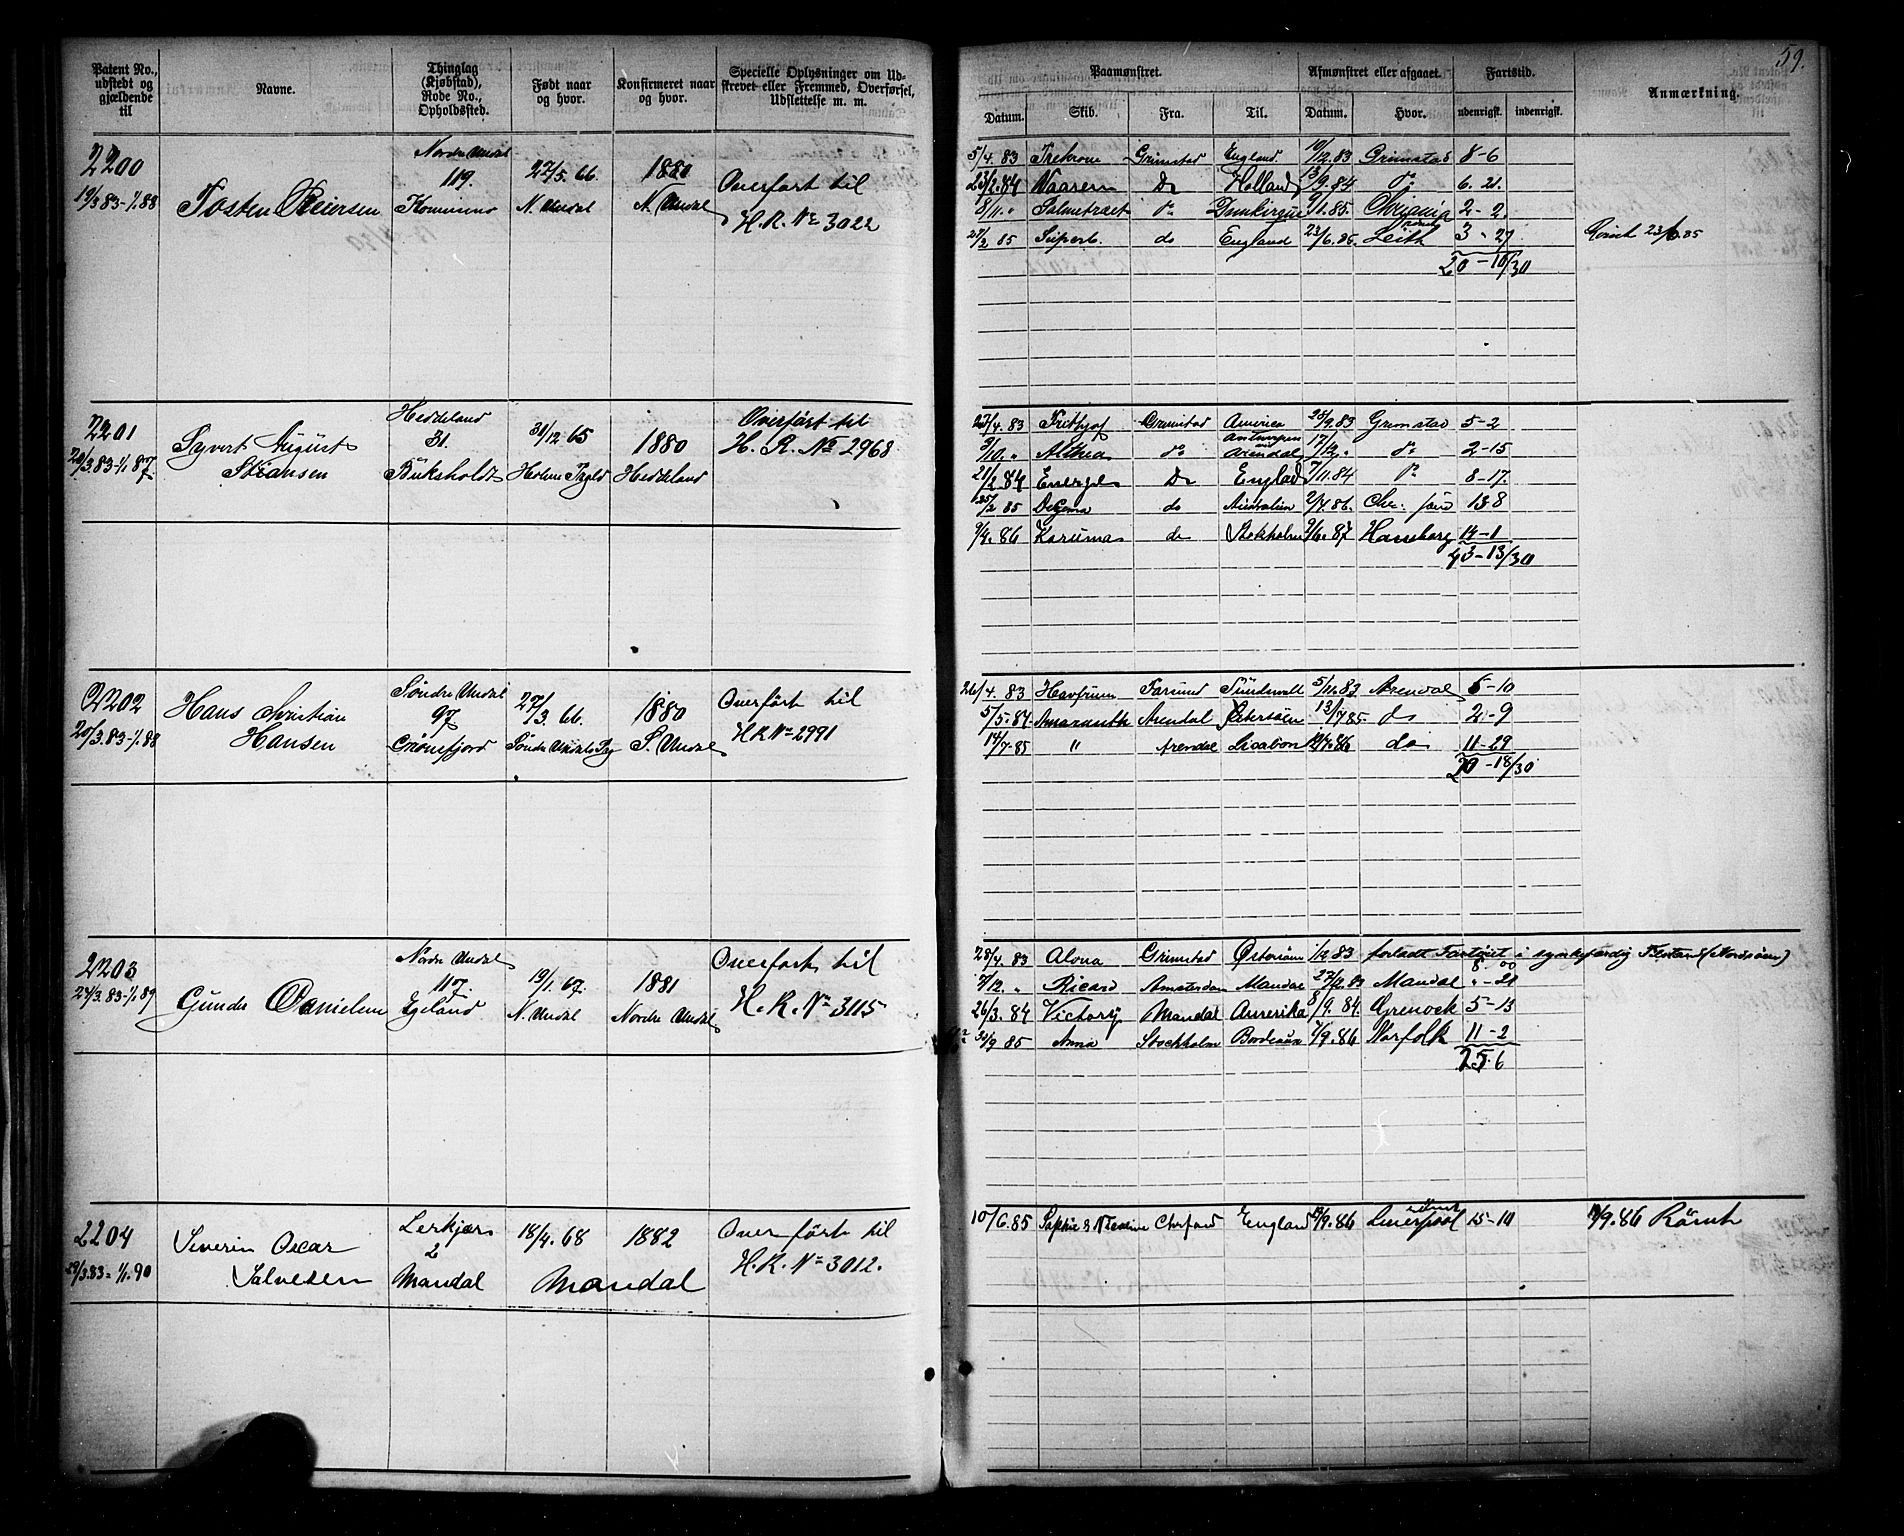 59.
Patent No., udstedt og gjældende til
Navne.
Thinglag (Kjøbstad), Rode No., Opholdssted.
Født naar og hvor.
Konfirmeret naar og hvor.
Specielle Oplysninger om Udskrevet eller Fremmed, Overførsel, Udslettelse m. m.
Paamønstret.
Afmønstret eller afgaaet.
Fartstid.
Anmærkning.
Datum. Skib. Fra. Til. Datum. Hvor. udenrigsk. indenrigsk.
2200
19/3 83-1/1 88
Tosten Reiersen
Nordre Undal
119.
27/5. 66.
N. Undal
1880
N. Undal
Overført til
H. R. No 3022
5/4. 83 Trekrone Grimstad England 10/12.83 Grimstad 8-6
23/2.84 Do Holland 13/9.84 do 6. 21.
8/11. " do Dunkirque 9/1.85. 2-2.
27/2 85 Superb. do England 23/6.85. Leith 3-27 Rømt 23/6.85
20-10/30
2201
20/3.83-1/1.87
Syvert August
Heddeland
31.
31/12 65
Holme Tgld
1880
Heddeland
Overført til
H. R. No 2968
23/4. 83 Frithjof Grimstad America 25/9.83 Grimstad 5-2
9/10. " Althea do Antwerpen Arendal 17/12. do 2-15
21/2 84 Do England 7/11.84 do 8-17.
25/2 85 do Australien 2/4.86. 13-8
9/4. 86 do Stokholm 9/6.87 Hamborg 14-1
43-13/30
2202
20/3.83-1/1.88
Hans Christian
Hansen
Søndre Undal
97
27/3. 66.
1880
S. Undal
Overført til
H R No 2991
26/4. 83 Havfruen Farsund Sundsvall 5/11.83 Arendal 6-10
5/5.84 Amaranth Arendal Østersøen 13/7 85. do 2-9
14/7.85 " Arendal Lisabon do 11-29
20-18/30
2203
24/3.83-1/1.89
Gunder Danielsen
Nordre Undal
117.
Egeland
19/1. 67.
N. Undal
1881
Nordre Undal
Overført til
H. R. No 3115
28/4. 83 Grimstad Østersøen 1/12 83 forladt Fartøiet i synkefærdig Tilstand (Nordsøen)
8.00
7/12. " Ricard Amsterdam Mandal 27/12.83 Mandal "-20
26/3. 84 Victory Mandal Amerika 8/9. 84. Grenock 5-13
30/9 85 Anna Stockholm Bordeaux 7/9.86 Norfolk 11-2
25.6
2204
29/3.83-1/1.90
Severin Oscar
Salvesen
2
Mandal
18/4.68
1882
Mandal
Overført til
H. R. No 3012.
10/6.85 England 19/9.86 rømt Liverpool 15-10 19/9.86 Rømt